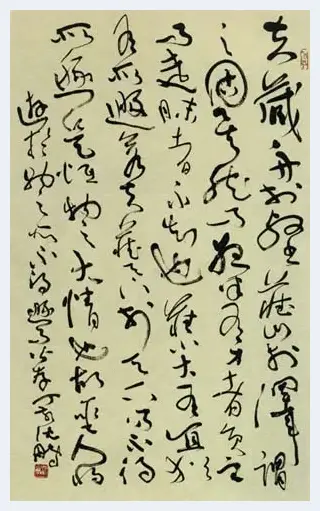 夫藏舟於壑藏山於澤謂
之固矣然而夜半有力者負之
而走昧者不知也藏小大有宜猶
有所遯若夫藏天下於天下而不得
所遯是恆物之大情也故聖人將
遊於物之所不得遯而皆存 沈鵬